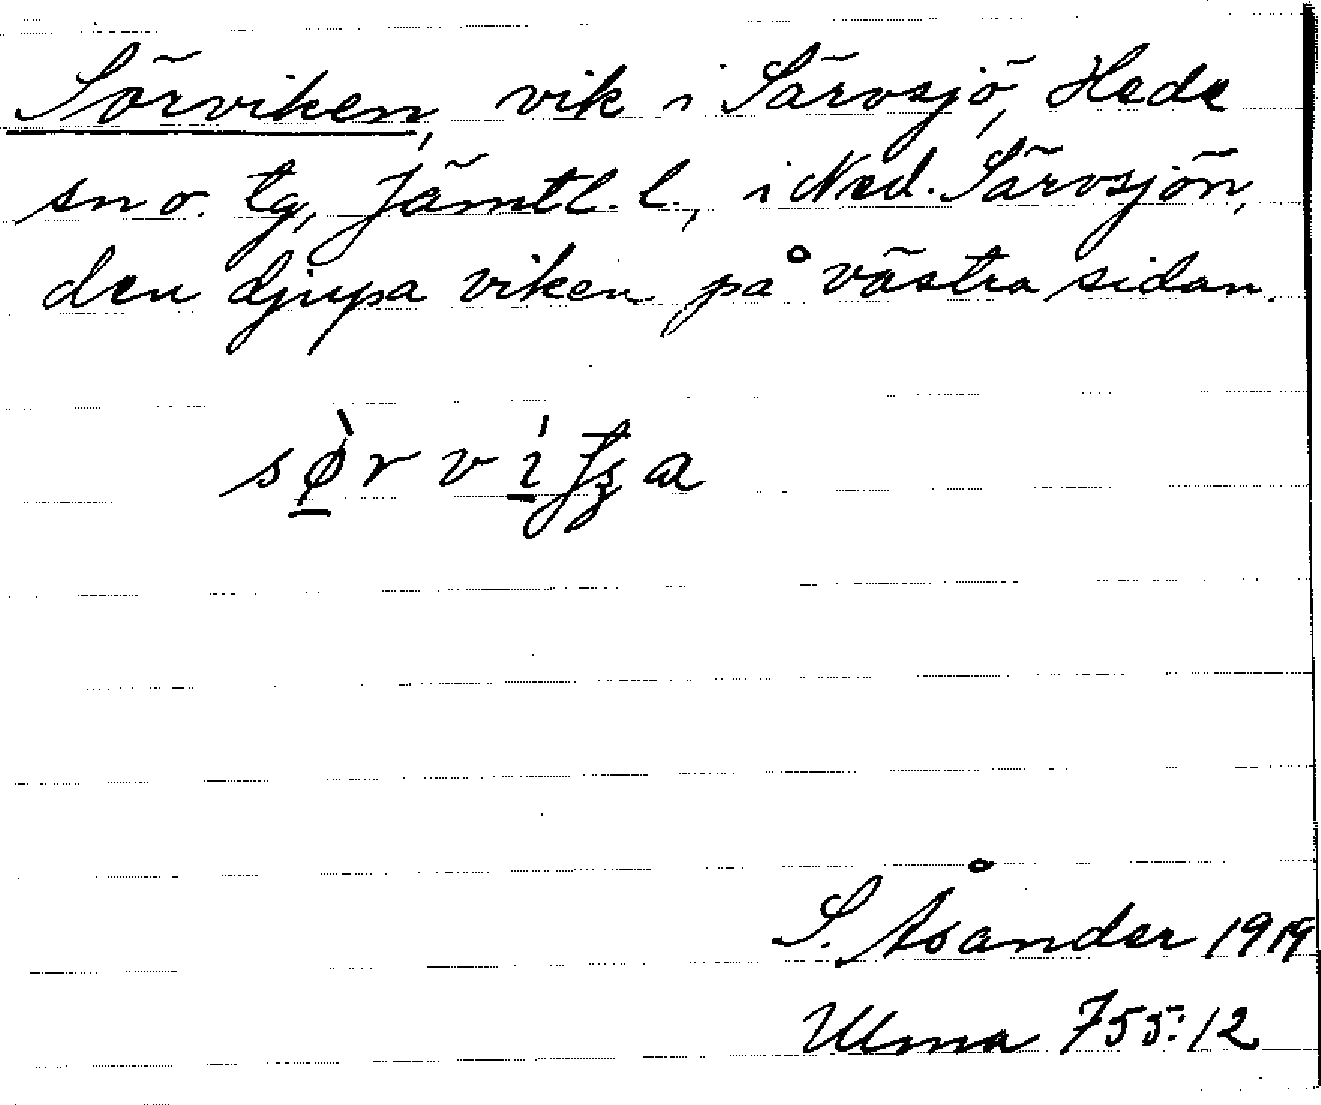 Sörviken, vik i Särvsjö, Hede
sn o. tg, Jämtl. l., i Ned. Särvsjön,
den djupa viken på västra sidan.
S. Åsander 1919
Ulma 755:12